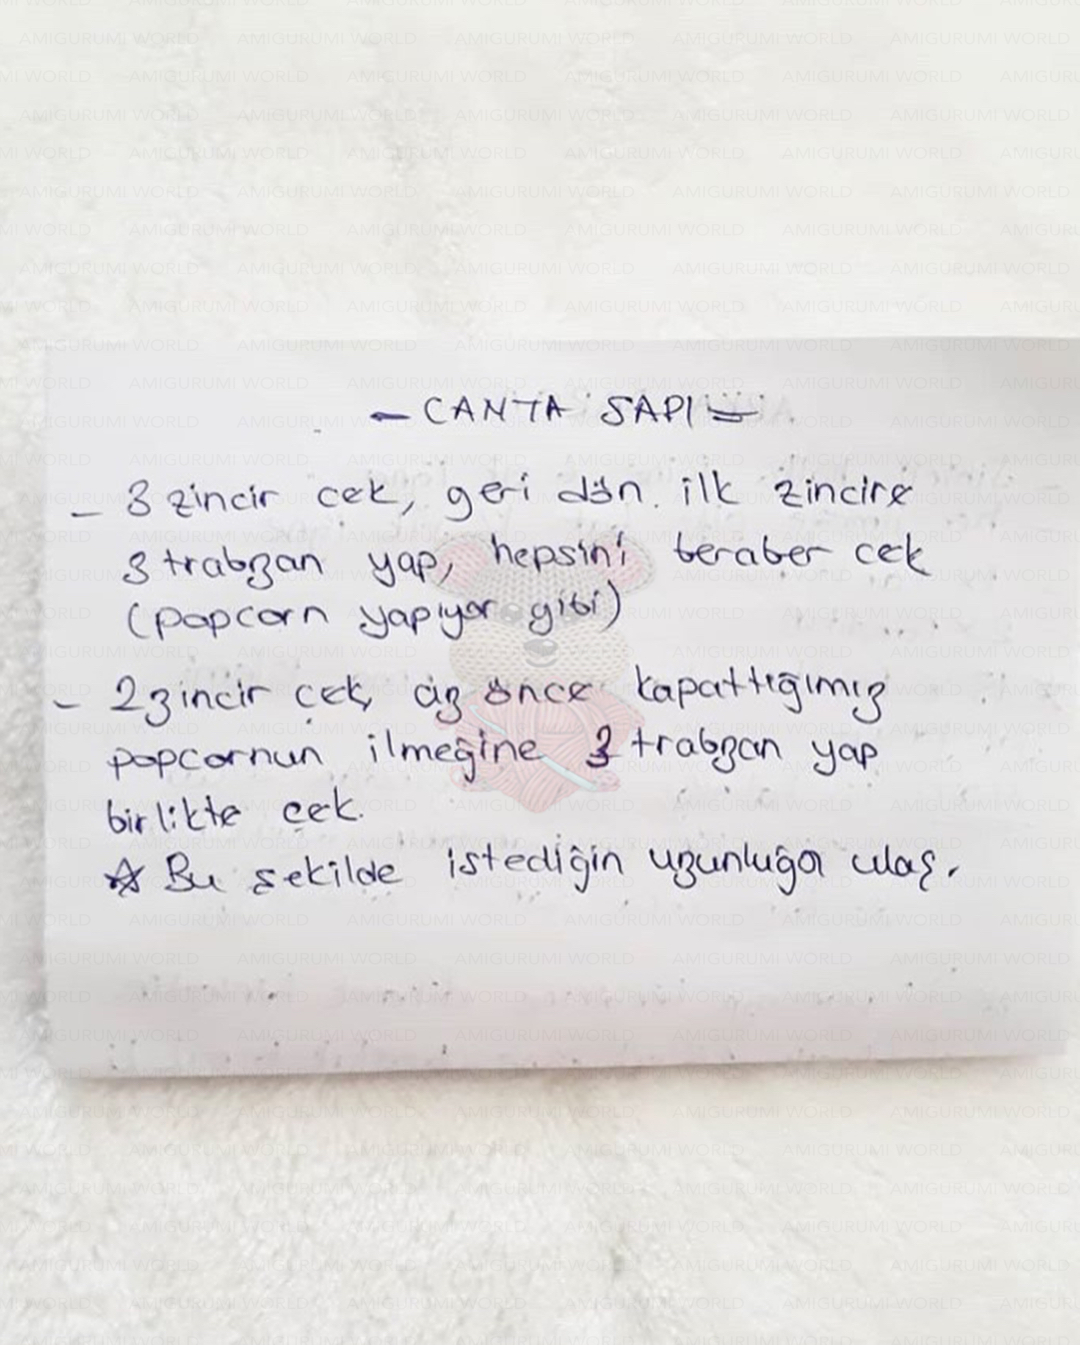 - CANTA SAPI -
- 3 zincir çek, geri dön. ilk zincire
3 trabzan yap, hepsini beraber çek
(popcorn yapıyor gibi)
- 2 zincir çek, az önce kapattığımız
popcornun ilmeğine 3 trabzan yap
birlikte çek.
☆ Bu şekilde istediğin uzunluğa ulaş.
AMIGURUMI WORLD